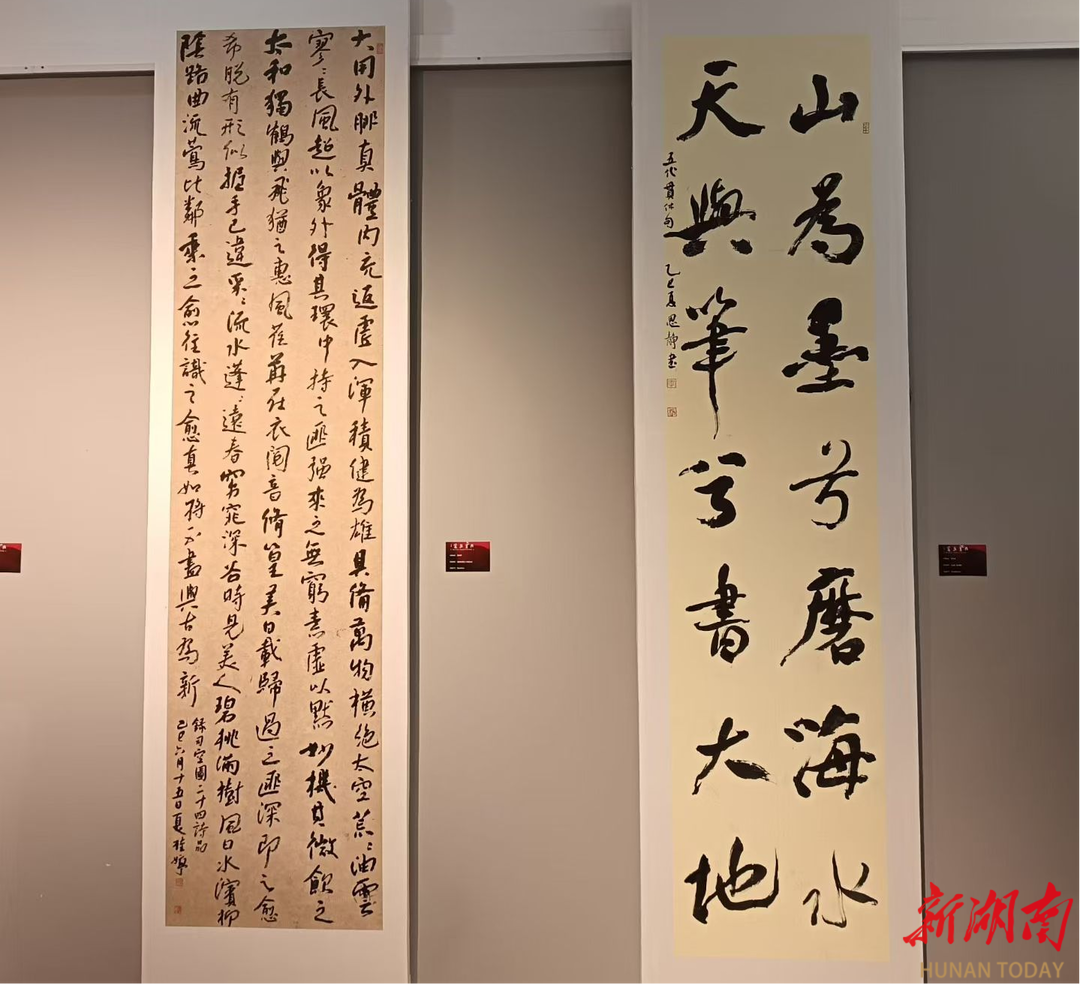 山為墨兮磨海水
天與筆兮書大地
五代贯休句 乙巳夏思静书
大用外腓真體内充返虛入渾積健為雄具備萬物橫絶太空荒々油雲
寥々長風超以象外得其環中持之匪强來之無窮素處以默妙機其微飲之
太和獨鶴與飛猶之惠風荏苒在衣閲音脩篁美曰載歸遇之匪深即之愈
希脱有形似握手已違采々流水蓬々遠春窈窕深谷時見美人碧桃滿樹風日水濱柳
陰路曲流鶯比鄰乘之愈往識之愈真如將不盡與古為新
錄司空圖二十四詩品
乙巳六月十五日夏桂
新湖南
HUNAN TODAY